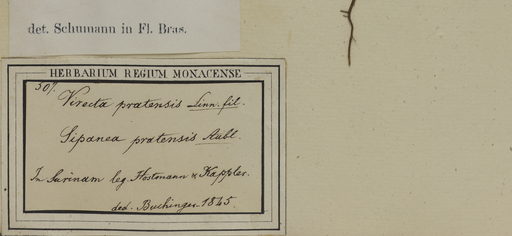 det. Schumann in Fl. Bras.
HERBARIUM REGIUM MONACENSE
507.
Virecta pratensis Linn. fil.
Sipanea pratensis Aubl.
In Surinam leg Hostmann & Kappler.
ded. Buchinger 1845.